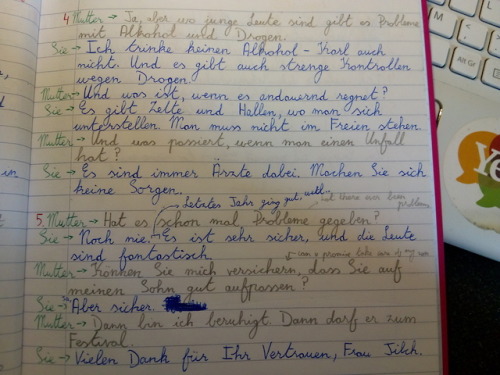 4 Mutter → Ja, aber wo junge Leute sind gibt es Probleme
mit Alkohol und Drogen.
Sie → Ich trinke keinen Alkohol - Karl auch
nicht. Und es gibt auch strenge Kontrollen
wegen Drogen
Mutter → Und was ist, wenn es andauernd regnet?
Sie → Es gibt Zelte und Hallen, wo man sich
unterstellen. Man muss nicht im Freien stehen.
Mutter → Und was passiert, wenn man einen Unfall
hat?
Sie → Es sind immer Ärzte dabei. Machen Sie sich
keine Sorgen.
Letztes Jahr ging gut.
5. Mutter → Hat es schon mal Probleme gegeben?
Sie → Noch nie. Es ist sehr sicher, und die Leute
sind fantastisch
Mutter → Können Sie mich versichern, dass Sie auf
meinen Sohn gut aufpassen?
Sie → Aber sicher.
Mutter → Dann bin ich beruhigt. Dann darf er zum
Festival.
Sie → Vielen Dank für Ihr Vertrauen, Frau Jilch.
M
Alt Gr
Ye